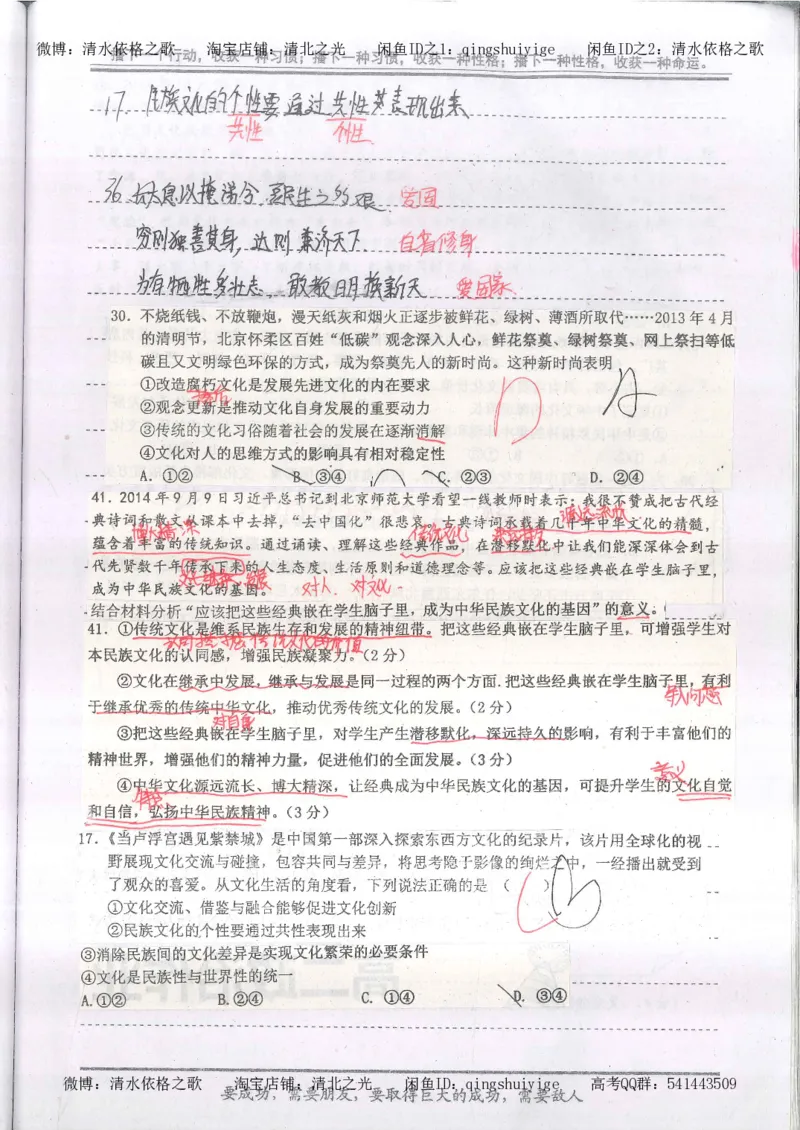 微博：清水依格之歌 淘宝店铺：清北之光 闲鱼ID之1：qingshuiyige 闲鱼ID之2：清水依格之歌
播下一个行动，收获一种习惯；播下一种习惯，收获一种性格；播下一种性格，收获一种命运。
17. 民族文化的个性要通过共性来表现出来
共性 个性
36. 长太息以掩涕兮 哀民生之多艰 爱国
穷则独善其身，达则兼济天下 自省修身
为有牺牲多壮志，敢教日月换新天 爱国家
30．不烧纸钱、不放鞭炮，漫天纸灰和烟火正逐步被鲜花、绿树、薄酒所取代……2013年4月
的清明节，北京怀柔区百姓“低碳”观念深入人心，鲜花祭奠、绿树祭奠、网上祭扫等低
碳且又文明绿色环保的方式，成为祭奠先人的新时尚。这种新时尚表明
①改造腐朽文化是发展先进文化的内在要求
②观念更新是推动文化自身发展的重要动力
③传统的文化习俗随着社会的发展在逐渐消解
④文化对人的思维方式的影响具有相对稳定性
A．①② B．③④ C．②③ D．②④
41．2014年9月9日习近平总书记到北京师范大学看望一线教师时表示：我很不赞成把古代经
典诗词和散文从课本中去掉，“去中国化”很悲哀。古典诗词承载着几千年中华文化的精髓，
源远流长
博大精深 传统文化
蕴含着丰富的传统知识。通过诵读、理解这些经典作品，在潜移默化中让我们能深深体会到古
代先贤数千年传承下来的人生态度、生活原则和道德理念等。应该把这些经典嵌在学生脑子里，
成为中华民族文化的基因。
对人、对文化
结合材料分析“应该把这些经典嵌在学生脑子里，成为中华民族文化的基因”的意义。
41．①传统文化是维系民族生存和发展的精神纽带。把这些经典嵌在学生脑子里，可增强学生对
本民族文化的认同感，增强民族凝聚力。（2分）
②文化在继承中发展，继承与发展是同一过程的两个方面.把这些经典嵌在学生脑子里，有利
于继承优秀的传统中华文化，推动优秀传统文化的发展。（2分）
③把这些经典嵌在学生脑子里，对学生产生潜移默化，深远持久的影响，有利于丰富他们的
精神世界，增强他们的精神力量，促进他们的全面发展。（3分）
意义
④中华文化源远流长、博大精深，让经典成为中华民族文化的基因，可提升学生的文化自觉
和自信，弘扬中华民族精神。（3分）
17.《当卢浮宫遇见紫禁城》是中国第一部深入探索东西方文化的纪录片，该片用全球化的视
野展现文化交流与碰撞，包容共同与差异，将思考隐于影像的绚烂之中，一经播出就受到
了观众的喜爱。从文化生活的角度看，下列说法正确的是 （ ）
①文化交流、借鉴与融合能够促进文化创新
②民族文化的个性要通过共性表现出来
③消除民族间的文化差异是实现文化繁荣的必要条件
④文化是民族性与世界性的统一
A.①② B.②④ C. ①④ D. ③④
微博：清水依格之歌 淘宝店铺：清北之光 闲鱼ID：qingshuiyige 高考QQ群：541443509
要成功，需要朋友，要取得巨大的成功，需要敌人